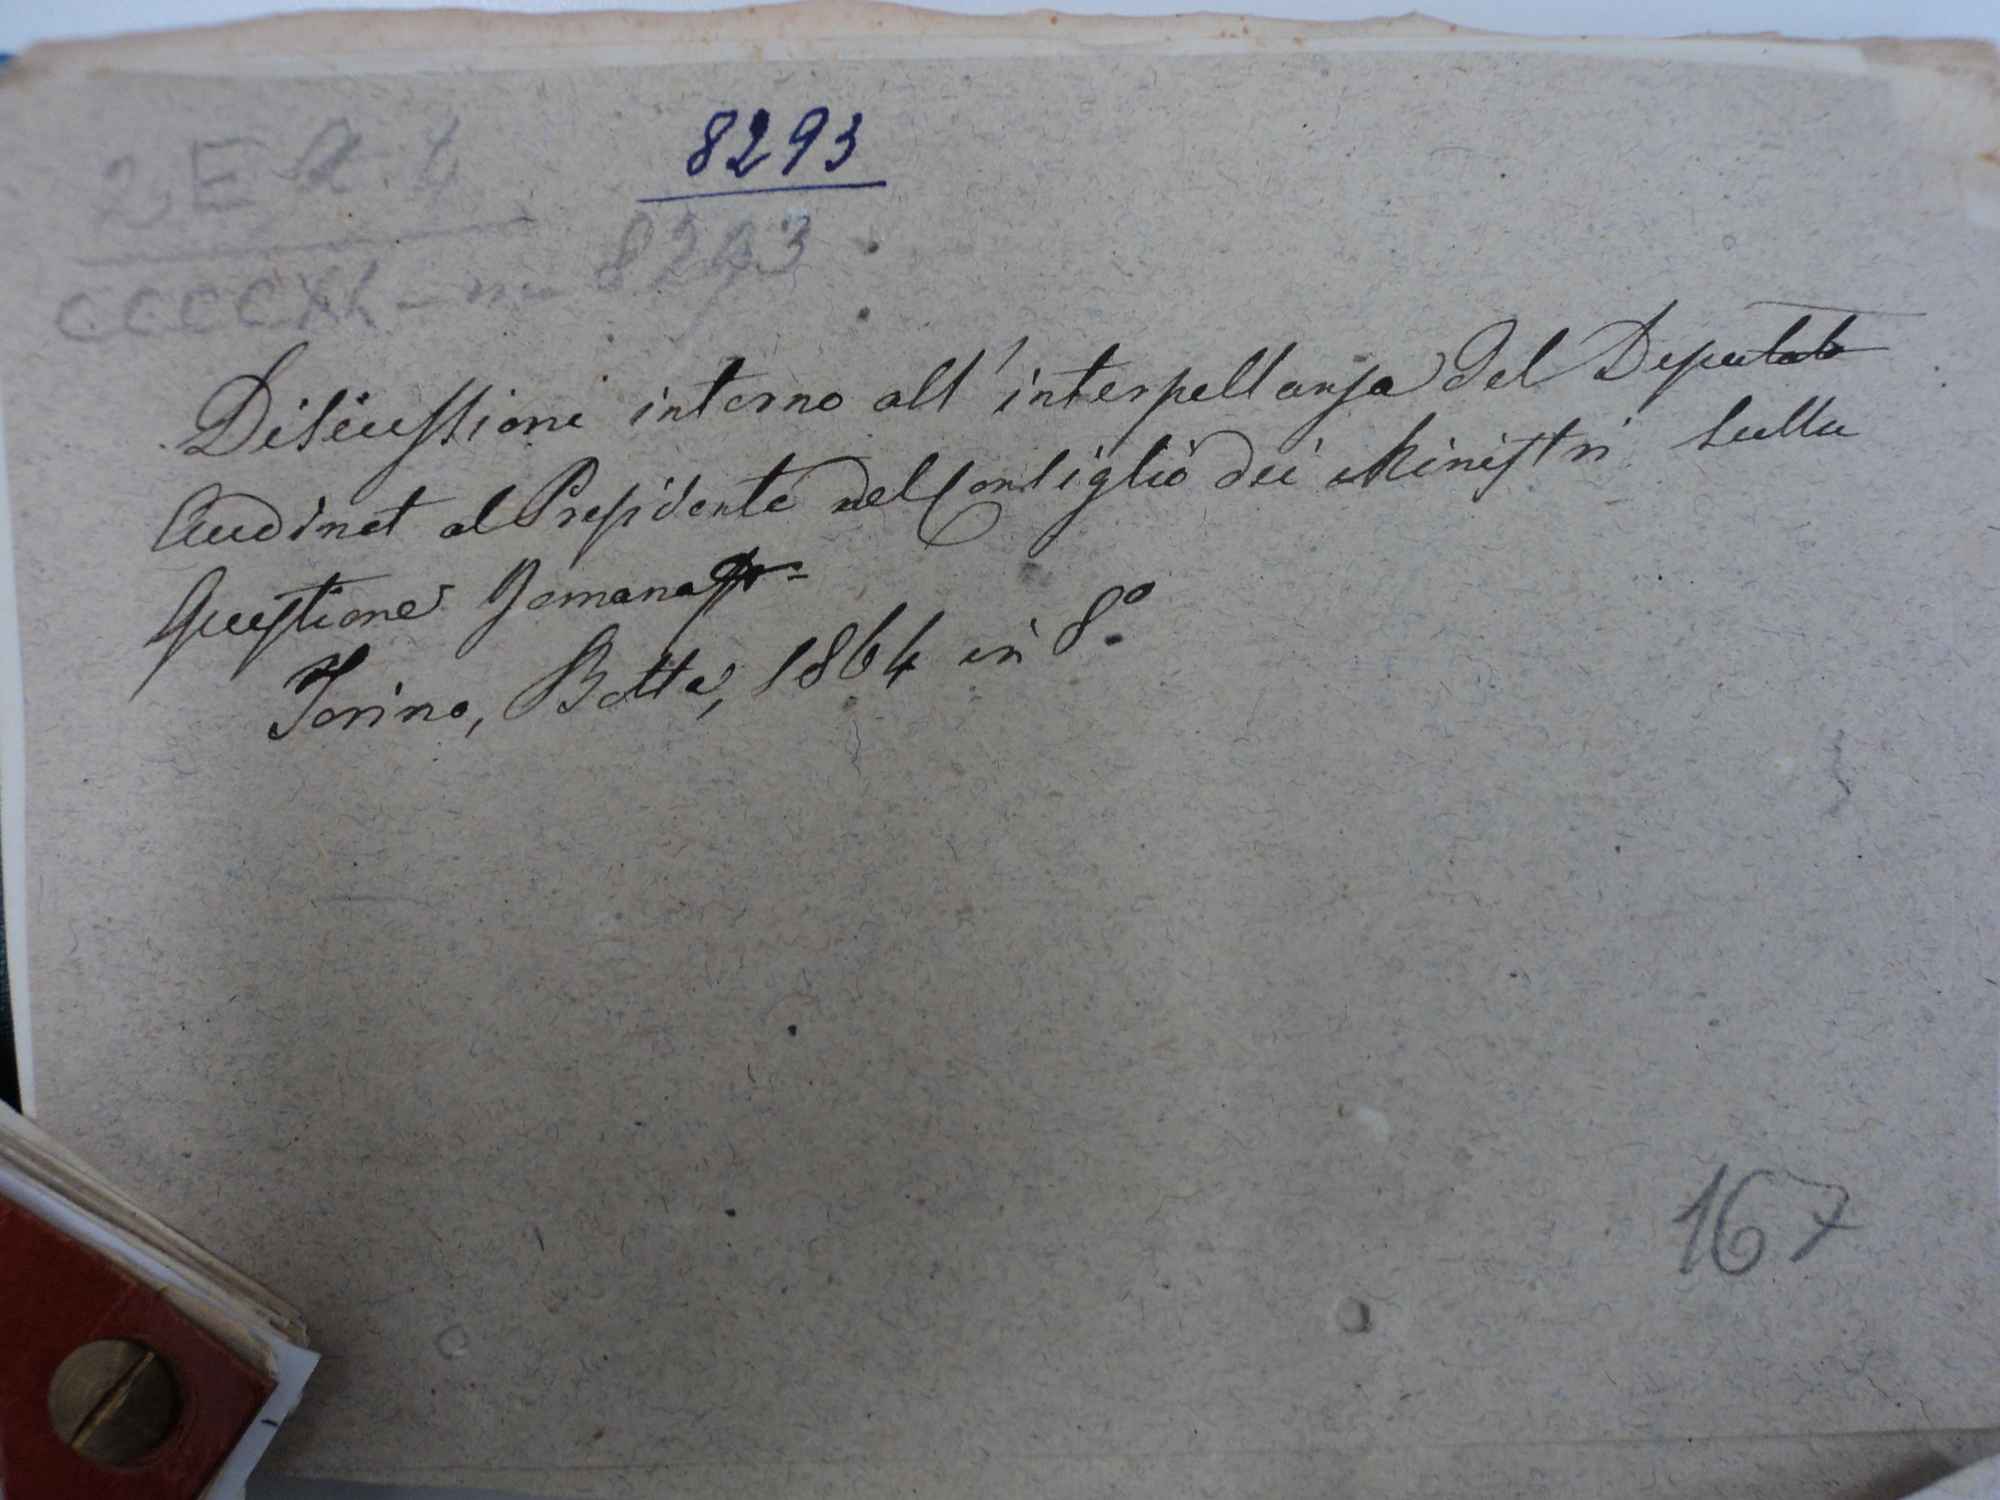 8293
2 E A. 4
CCCCXL - nu 8293
Discussione intorno all'interpellanza del Deputato
Audinet al Presidente nel Consiglio dei Ministri sulla
Questione Romana
Torino, Botta, 1864 in 8º
167